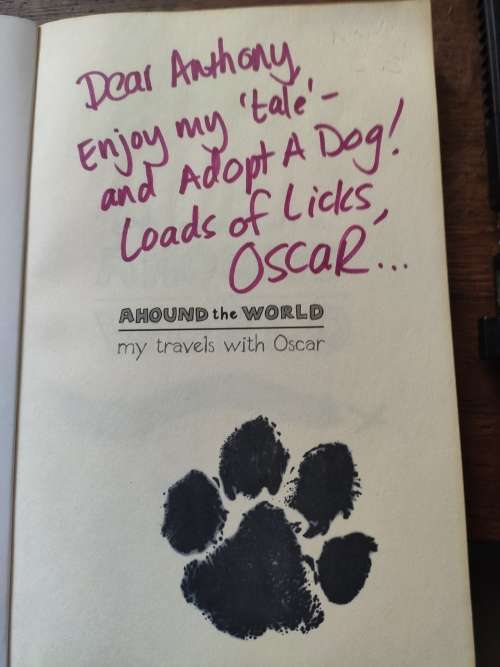 Dear Anthony,
Enjoy my 'tale' -
and Adopt A Dog!
Loads of Licks,
OSCAR...
AHOUND the WORLD
my travels with Oscar